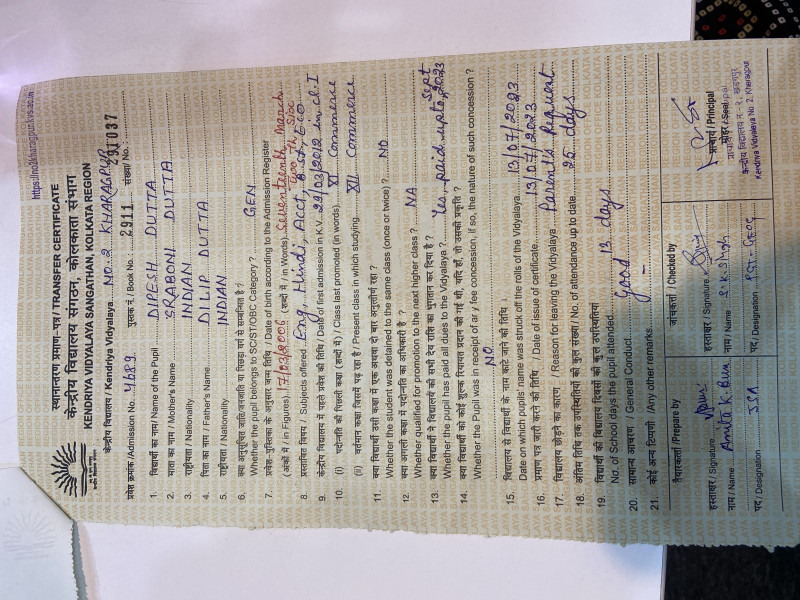 https://no2kharagpur.kvs.ac.in
स्थानान्तरण प्रमाण-पत्र / TRANSFER CERTIFICATE
केन्द्रीय विद्यालय संगठन, कोलकाता संभाग
KENDRIYA VIDYALAYA SANGATHAN, KOLKATA REGION
केन्द्रीय विद्यालय / Kendriya Vidyalaya NO-2 KHARAGPUR
प्रवेश क्रमांक /Admission No. 4689 पुस्तक सं / Book No. 2911 संख्या/ No. 291037
1. विद्यार्थी का नाम/ Name of the Pupil DIPESH DUTTA
2. माता का नाम / Mother's Name SRABONI DUTTA
3. राष्ट्रीयता / Nationality INDIAN
4. पिता का नाम / Father's Name DILIP DUTTA
5. राष्ट्रीयता / Nationality INDIAN
6. क्या अनुसूचित जाति/जनजाति या पिछड़ा वर्ग से सम्बन्धित है ?
Whether the pupil belongs to SC/ST/OBC Category ? GEN
7. प्रवेश-पुस्तिका के अनुसार जन्म तिथि / Date of birth according to the Admission Register
(अंकों में / in Figures) 17/03/2006 (शब्दों में / in Words) Seventeenth March
Two Th. Six
8. प्रस्तावित विषय / Subjects offered Eng, Hindi, Acct, B.ST, ECO
9. केन्द्रीय विद्यालय में पहले प्रवेश की तिथि / Date of first admission in K.V. 29/03/2012 in cl. I
10. (i) पदोन्नति की पिछली कक्षा (शब्दों में) / Class last promoted (in words) XI Commerce
(ii) वर्तमान कक्षा जिसमें पढ़ रहा है / Present class in which studying XII Commerce
11. क्या विद्यार्थी उसी कक्षा में एक अथवा दो बार अनुतीर्ण रहा ?
Whether the student was detained to the same class (once or twice) ? NO
12. क्या अगली कक्षा में पदोन्नति का अधिकारी है ?
Whether qualified for promotion to the next higher class ? NA
13. क्या विद्यार्थी ने विद्यालय को सभी देय राशि का भुगतान कर दिया है ?
Whether the pupil has paid all dues to the Vidyalaya ? Yes, paid upto Sept 2023
14. क्या विद्यार्थी को कोई शुल्क रियायत प्रदान की गई थी, यदि हाँ, तो उसकी प्रकृति ?
Whether the Pupil was in receipt of any fee concession, if so, the nature of such concession ?
NO
15. विद्यालय से विद्यार्थी के नाम काटे जाने की तिथि ।
Date on which pupils name was struck off the rolls of the Vidyalaya 13/07/2023
16. प्रमाण पत्र जारी करने की तिथि / Date of issue of certificate 13/07/2023
17. विद्यालय छोड़ने का कारण / Reason for leaving the Vidyalaya Parent's Request
18. अंतिम तिथि तक उपस्थितियों की कुल संख्या / No. of attendance up to date 25 days
19. विद्यार्थी की विद्यालय दिवसों की कुल उपस्थितियाँ
No. of School days the pupil attended 13 days
20. सामान्य आचरण / General Conduct Good
21. कोई अन्य टिप्पणी /Any other remarks -
तैयारकर्त्ता /Prepare by
हस्ताक्षर / Signature
नाम / Name Amita K. Bun
पद / Designation JSA
जांचकर्ता / Checked by
हस्ताक्षर / Signature
नाम / Name S. K. Singh
पद / Designation PGT-GEOG
प्राचार्य / Principal
मोहर / Seal
केन्द्रीय विद्यालय नं-२, खड़गपुर
Kendriya Vidyalaya No 2. Kharagpur